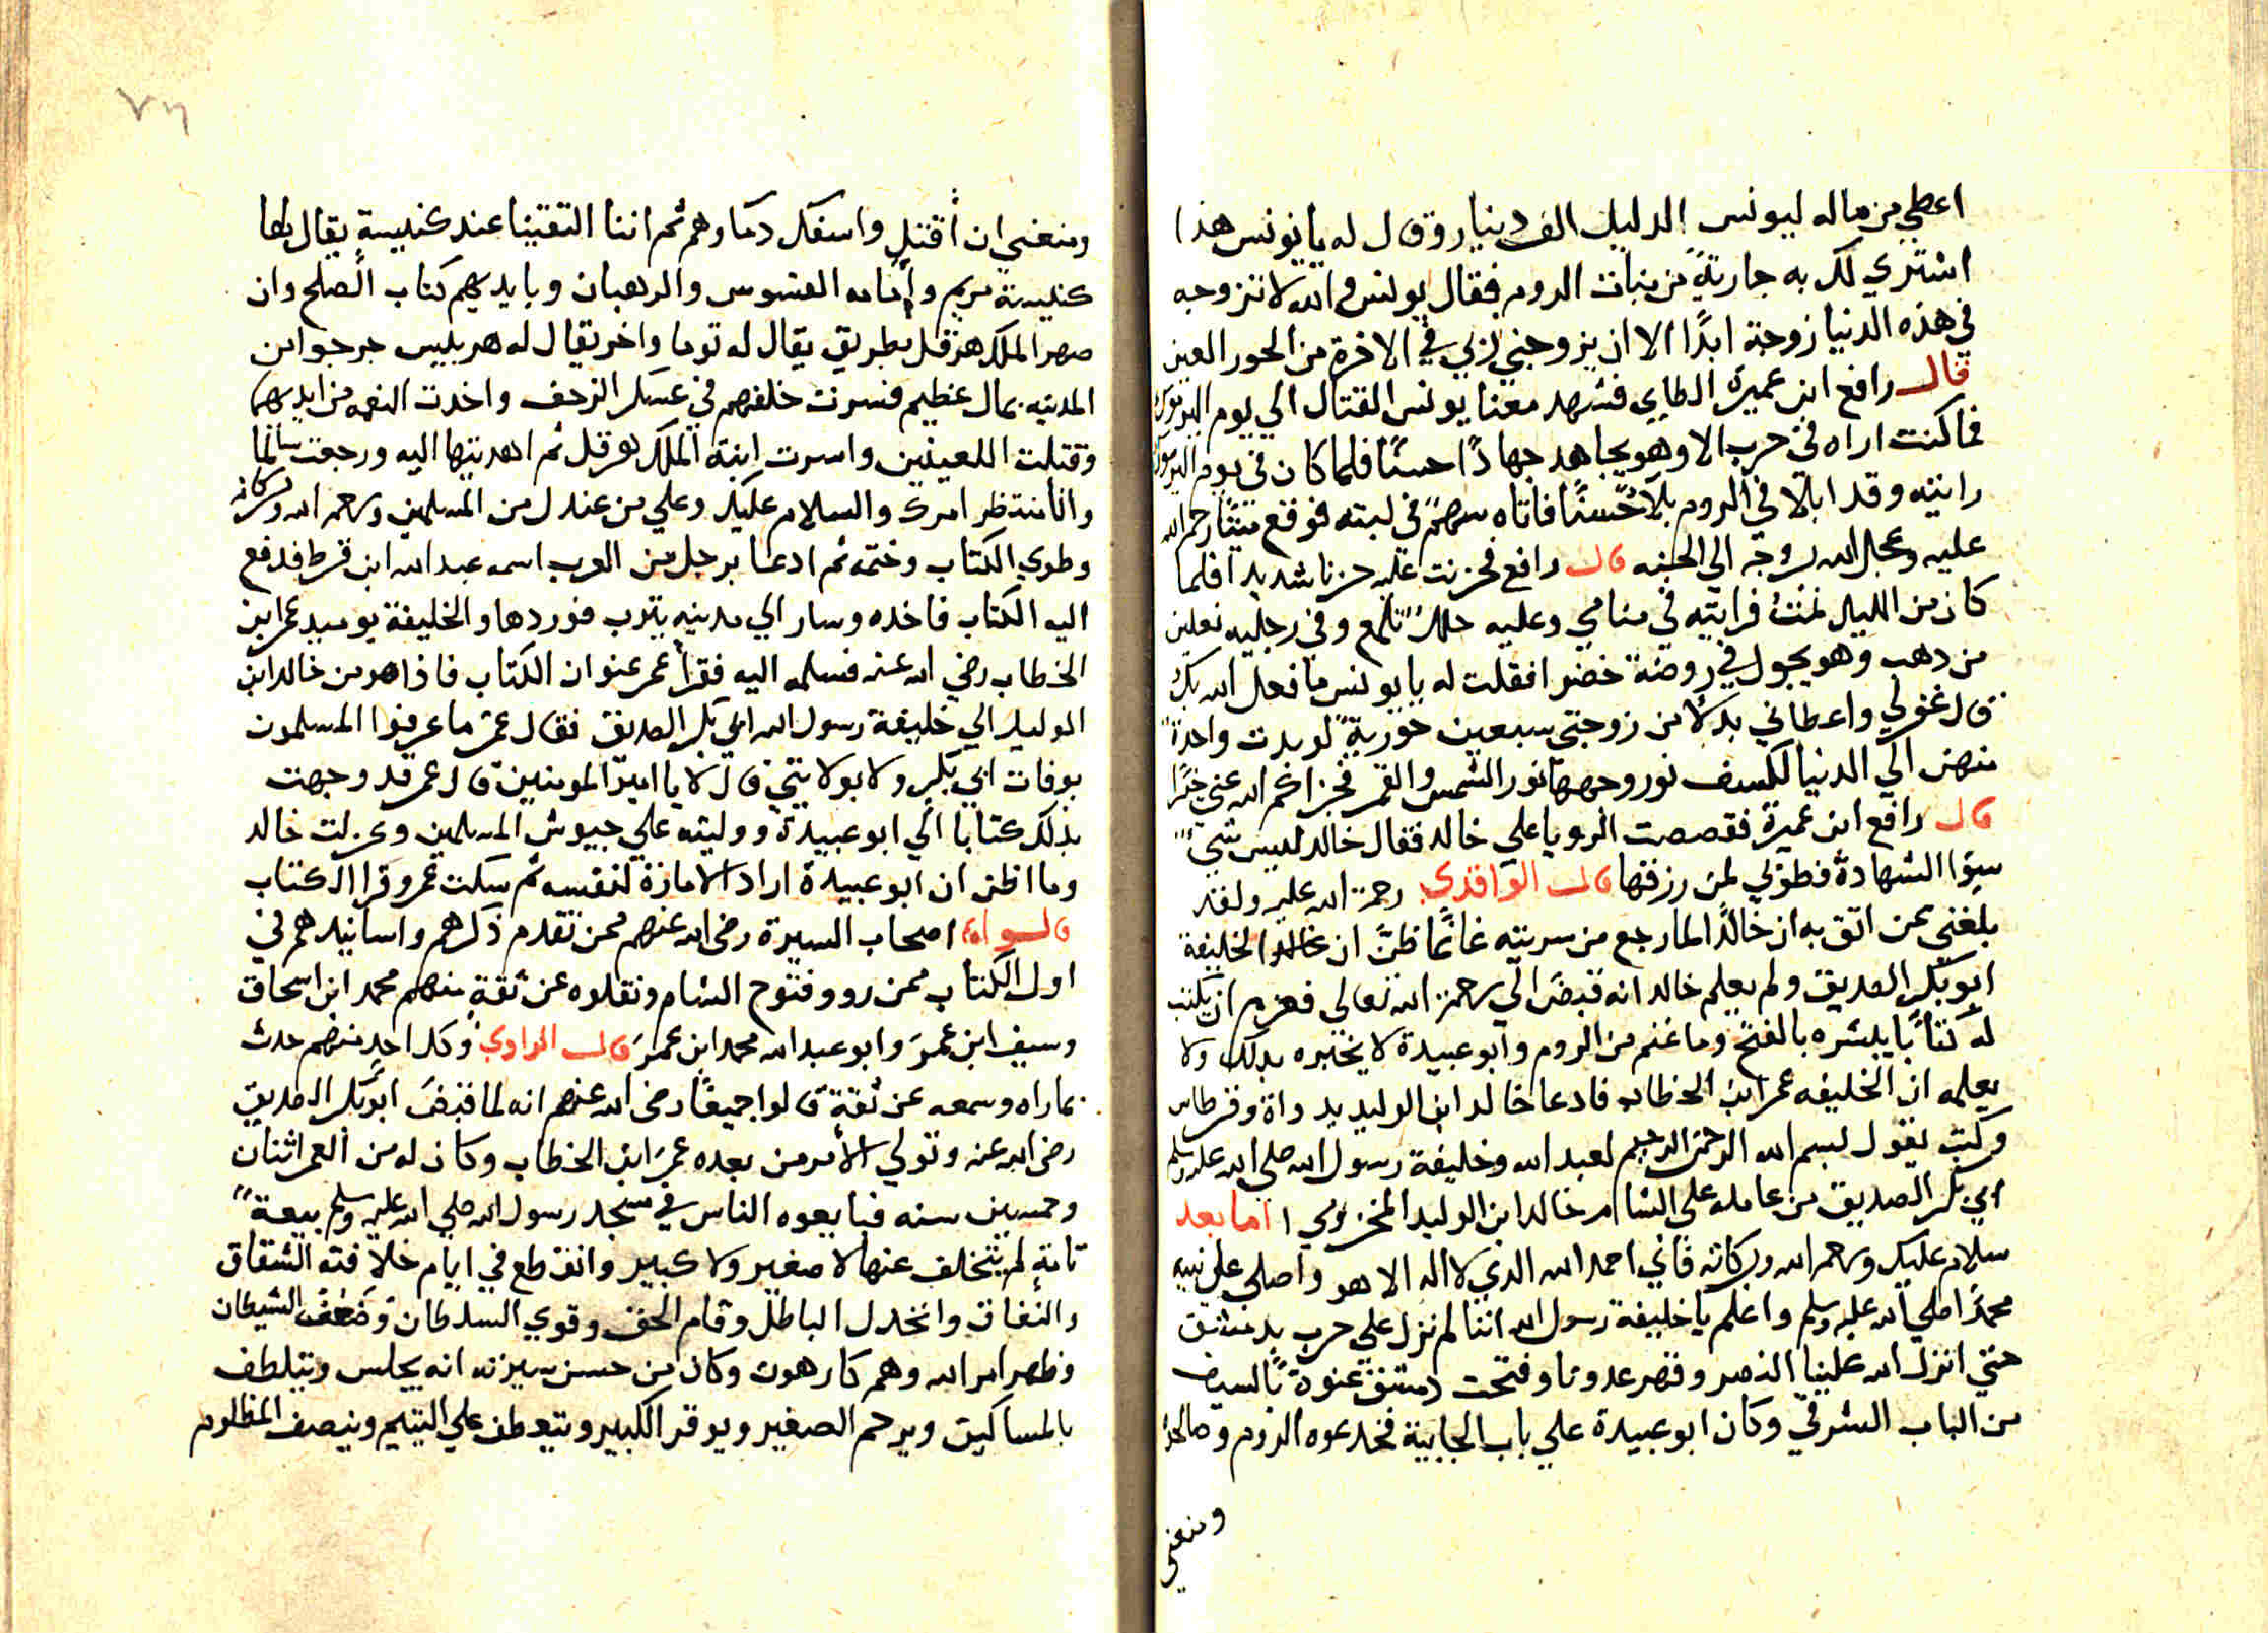 اعطي من ماله ليونس الدليل الف دينار وقال له يا يونس هذا
اشتري لك به جارية من بنات الروم فقال يونس والله لا تزوجه
في هذه الدنيا زوجة ابدًا الا ان يزوجني ربي في الاخرة من الحور العين
قال رافع ابن عميرة الطاي فشهد معنا يونس القتال الي يوم اليرموك
فما كنت اراه في حرب الا وهو يجاهد جهادًا حسنًا فلما كان في يوم اليرموك
رايته وقد ابلا في الروم بلآ حسنًا فاتاه سهمً في لبته فوقع ميتًا رحم الله
عليه وعجل الله بروحه الي الجنه قال رافع فحزنت عليه حزنا شديدا فلما
كان من الليل نمت فرايته في منامي وعليه حلل تلمع وفي رجليه نعلين
من دهب وهو يجول في روضة خضرا فقلت له يا يونس ما فعل الله بك
قال غفرلي واعطاني بدلا من زوجتي سبعين حورية لو بدت واحدة
منهن الي الدنيا لكسف نور وجهها نور الشمس والقمر فجزاكم الله عني خيرًا
قال رافع ابن عميرة فقصصت الرويا علي خالد فقال خالد ليس شي
سوا الشهادة فطوبي لمن رزقها قال الواقدي رحمة الله عليه ولقد
بلغني عمن اتق به ان خالدًا لما رجع من سريته غانمًا ظن ان الخليفة
ابو بكر الصديق ولم يعلم خالد انه قبض الي رحمة الله تعالي فعزم ان يكتب
له كتابًا يبشره بالفتح وما غنم من الروم وابو عبيدة لا يخبره بدلك ولا
يعلمه ان الخليفه عمر ابن الخطاب فادعا خالد ابن الوليد بدواة وقرطاس
وكتب يقول بسم الله الرحمن الرحيم لعبد الله وخليفة رسول الله صلي الله عليه وسلم
ابي بكر الصديق من عامله علي الشام خالد ابن الوليد المخزومي اما بعد
سلام عليك ورحمة الله وبركاته فاني احمد الله الدي لا اله الا هو واصلي علي نبيه
محمدًا صلي الله عليه وسلم واعلم يا خليفة رسول الله اننا لم نزل علي حرب بدمشق
حتي انزل الله علينا النصر وقهر عدونا وفتحت دمشق عنوة بالسيف
من الباب الشرقي وكان ابو عبيدة علي باب الجابية فخدعوه الروم وصالحوا
ومنعني
٧٦
ومنعني ان أقتل واسفك دماوهم ثم اننا التقينا عند كنيسة يقال لها
كنيسة مريم وأمامه القسوس والرهبان وبايديهم كتاب الصلح وان
صهر الملك هرقل بطريق يقال له توما واخر يقال له هربيس خرجوا من
المدينه بمال عظيم فسرت خلفهم في عسكر الزحف واخدت النعمه من ايديهما
وقتلت اللعينين واسرت ابنة الملك هرقل ثم اهديتها اليه ورجعت سالما
وانا منتظر امرك والسلام عليك وعلي من عندك من المسلمين ورحمة الله وبركاته
وطوي الكتاب وختمه ثم ادعا برجل من العرب اسمه عبد الله ابن قرط فدفع
اليه الكتاب فاخده وسار الي مدينه يترب فوردها والخليفة يوميد عمر ابن
الخطاب رضي الله عنه فسلمه اليه فقرأ عمر عنوان الكتاب فاذا هو من خالد ابن
الوليد الي خليفة رسول الله ابي بكر الصديق فقال عمر ما عرفوا المسلمون
بوفات ابي بكر ولا بولايتي قال لا يا امير المومنين قال عمر قد وجهت
بدلك كتابا الي ابو عبيدة ووليته علي جيوش المسلمين وعزلت خالد
وما اظن ان ابو عبيدة اراد الامارة لنفسه ثم سكت عمر وقرا الكتاب
قالوا اصحاب السيرة رضي الله عنهم ممن تقدم ذكرهم واسانيدهم في
اول الكتاب ممن روو فتوح الشام ونقلوه عن ثقة منهم محمد ابن اسحاق
وسيف ابن عمرَ وابو عبد الله محمد ابن عمرَ قال الراوي وكل احدٍ منهم حدث
بما راه وسمعه عن ثقة قالوا جميعًا رضي الله عنهم انه لما قبض ابو بكر الصديق
رضي الله عنه وتولي الأمر من بعده عمر ابن الخطاب وكان له من العمر اثنان
وخمسين سنه فبايعوه الناس في مسجد رسول الله صلي الله عليه وسلم بيعة
تامةٍ لم يتخلف عنها لا صغير ولا كبير وانقطع في ايام خلافته الشقاق
والنفاق وانخدل الباطل وقام الحق وقوي السلطان وضعف الشيطان
وظهر امر الله وهم كارهون وكان من حسن سيرته انه يجلس ويتلطف
بالمساكين ويرحم الصغير ويوقر الكبير ويتعطف علي اليتيم وينصف المظلوم